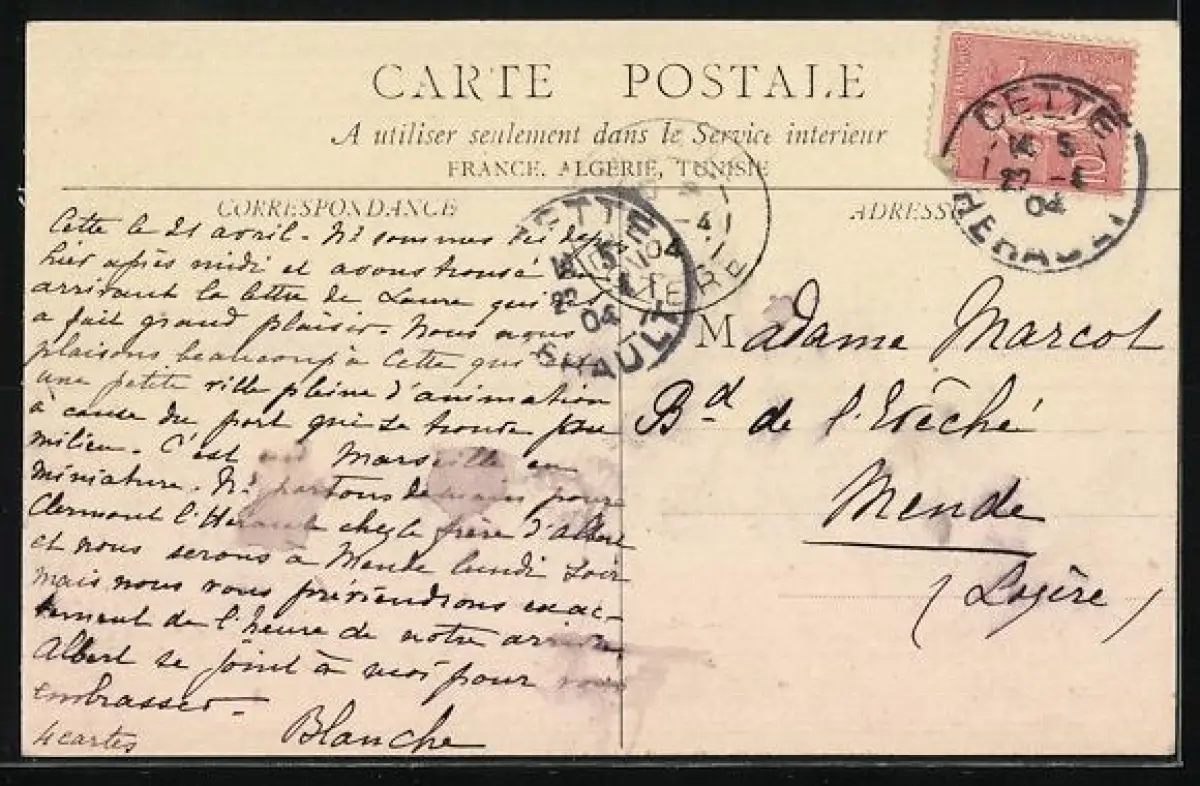 CARTE POSTALE
A utiliser seulement dans le Service interieur
FRANCE, ALGERIE, TUNISIE
CORRESPONDANCE
ADRESSE
Cette le 21 avril. Ns sommes ici depuis
hier après midi et avons trouvé en
arrivant la lettre de Laure qui ns
a fait grand plaisir. Nous nous
plaisons beaucoup à Cette qui est
une petite ville pleine d'animation
à cause du port qui se trouve au
milieu. C'est un Marseille en
miniature. Ns partons demain pour
Clermont l'Hérault chez le frère d'Albert
et nous serons à Mende lundi soir
mais nous vous préviendrons exac-
tement de l'heure de notre arrivée
Albert se joint à moi pour vous
embrasser.
Blanche
4 cartes
CETTE
5
22 -4
04
HERAULT
CETTE
5
22 -4
04
HERAULT
-4
04
Madame Marcot
Bd de l'Evêché
Mende
(Lozère)
10